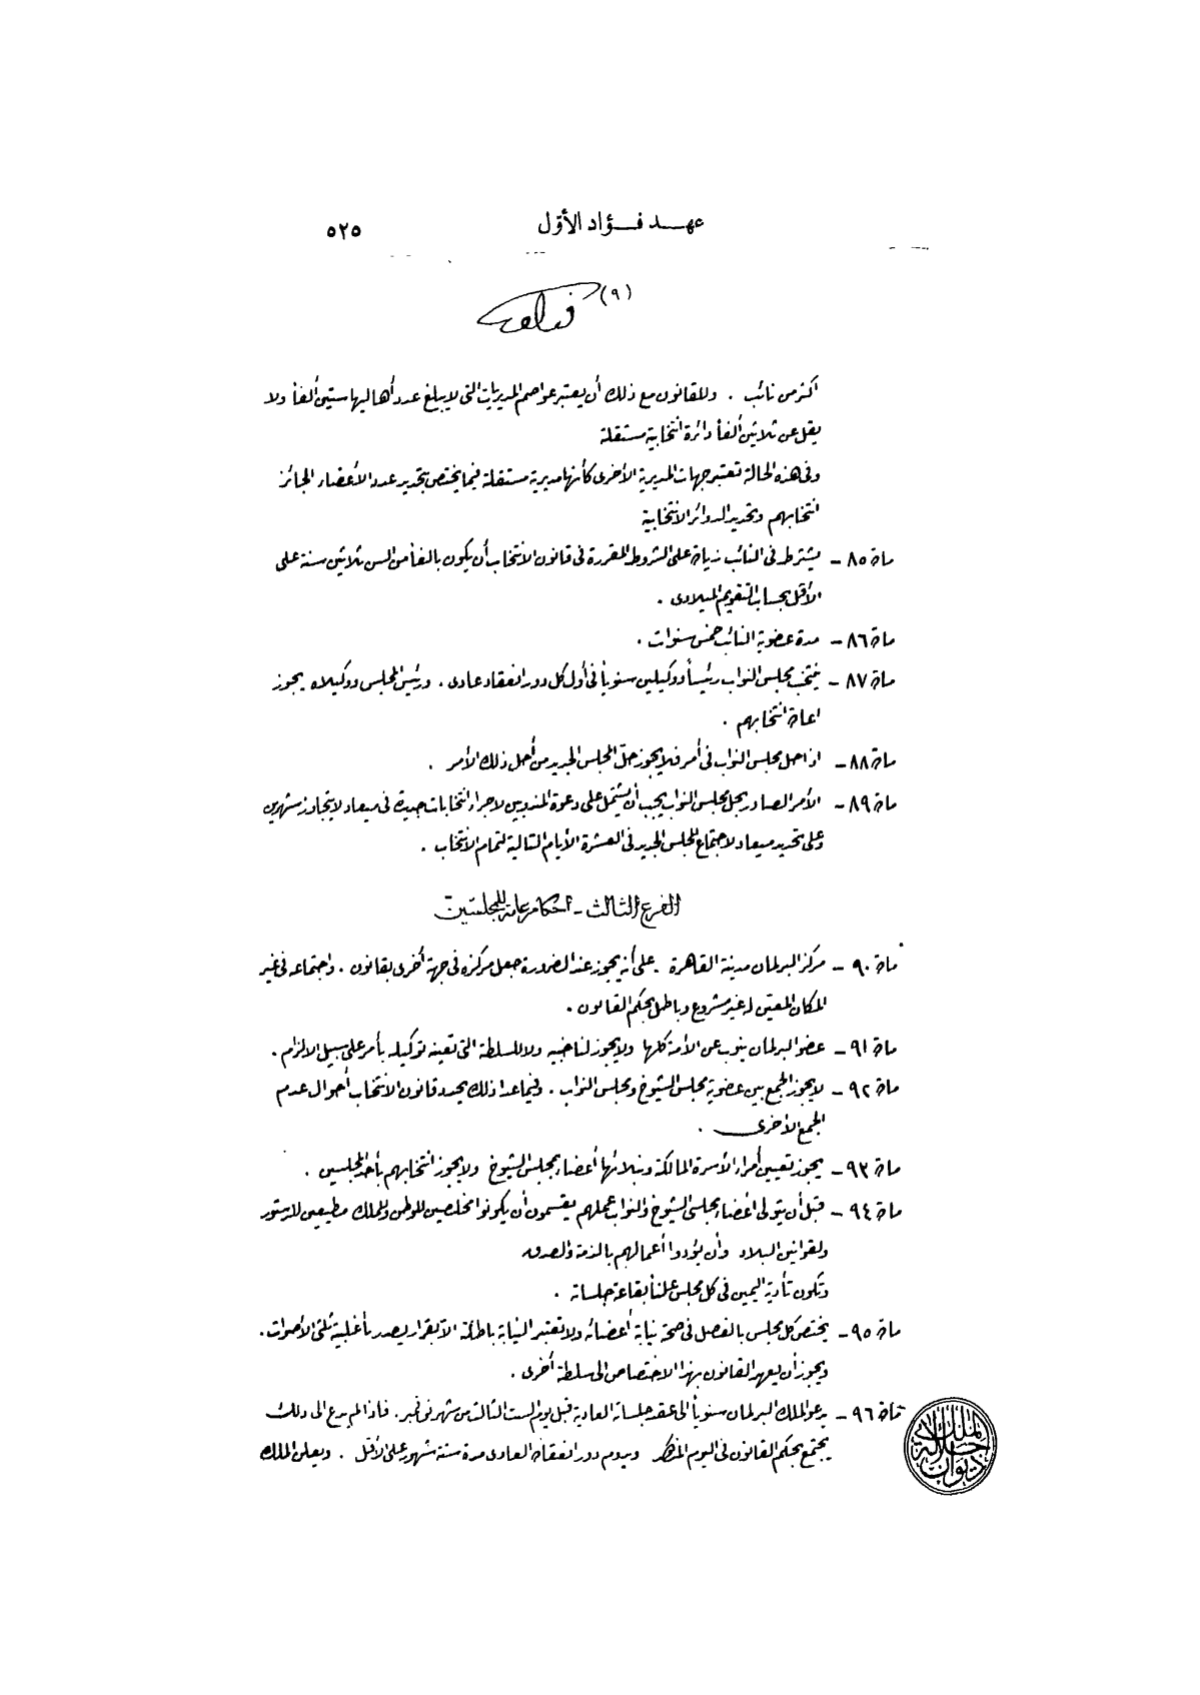 عهد فؤاد الأول ٥٢٥
(٩)
أكثر من نائب . وللقانون مع ذلك أن يعتبر عواصم المديريات التى لا يبلغ عدد أهاليها ستين ألفا ولا
يقل عن ثلاثين ألفا دائرة انتخابية مستقلة
وفى هذه الحالة تعتبر جهات المديرية الأخرى كأنها مديرية مستقلة فيما يختص بتحديد عدد الأعضاء الجائز
انتخابهم وتحديد الدوائر الانتخابية
مادة ٨٥ – يشترط فى النائب زيادة على الشروط المقررة فى قانون الانتخاب أن يكون بالغا من السن ثلاثين سنة على
الأقل بحساب التقويم الميلادى .
مادة ٨٦ – مدة عضوية النائب خمس سنوات .
مادة ٨٧ – ينتخب مجلس النواب رئيسا ووكيلين سنويا فى أول كل دور انعقاد عادى . ورئيس المجلس ووكيلاه يجوز
اعادة انتخابهم .
مادة ٨٨ – اذا حل مجلس النواب فى أمر فلا يجوز حل المجلس الجديد من أجل ذلك الأمر .
مادة ٨٩ – الأمر الصادر بحل مجلس النواب يجب أن يشتمل على دعوة المندوبين لاجراء انتخابات جديدة فى ميعاد لا يتجاوز شهرين
وعلى تحديد ميعاد لاجتماع المجلس الجديد فى العشرة الأيام التالية لتمام الانتخاب .
الفرع الثالث – أحكام عامة للمجلسين
مادة ٩٠ – مركز البرلمان مدينة القاهرة . على أنه يجوز عند الضرورة جعل مركزه فى جهة أخرى بقانون . واجتماعه فى غير
المكان المعين له غير مشروع وباطل بحكم القانون .
مادة ٩١ – عضو البرلمان ينوب عن الأمة كلها ولا يجوز لناخبيه ولا للسلطة التى تعينه توكيله بأمر على سبيل الالزام .
مادة ٩٢ – لا يجوز الجمع بين عضوية مجلس الشيوخ ومجلس النواب . وفيما عدا ذلك يحدد قانون الانتخاب أحوال عدم
الجمع الأخرى .
مادة ٩٣ – يجوز تعيين أمراء الأسرة المالكة ونبلائها أعضاء بمجلس الشيوخ ولا يجوز انتخابهم بأحد المجلسين .
مادة ٩٤ – قبل أن يتولى أعضاء مجلسى الشيوخ والنواب عملهم يقسمون أن يكونوا مخلصين للوطن وللملك مطيعين للدستور
ولقوانين البلاد وأن يؤدوا أعمالهم بالذمة والصدق
وتكون تأدية اليمين فى كل مجلس علنا بقاعة جلساته .
مادة ٩٥ – يختص كل مجلس بالفصل فى صحة نيابة أعضائه ولا تعتبر النيابة باطلة الا بقرار يصدر بأغلبية ثلثى الأصوات .
ويجوز أن يعهد القانون بهذا الاختصاص الى سلطة أخرى .
مادة ٩٦ – يدعو الملك البرلمان سنويا الى عقد جلساته العادية قبل يوم السبت الثالث من شهر نوفمبر . فاذا لم يدع الى ذلك
يجتمع بحكم القانون فى اليوم المذكور ويدوم دور انعقاده العادى مدة ستة شهور على الأقل . ويعلن الملك
ديوان جلالة الملك